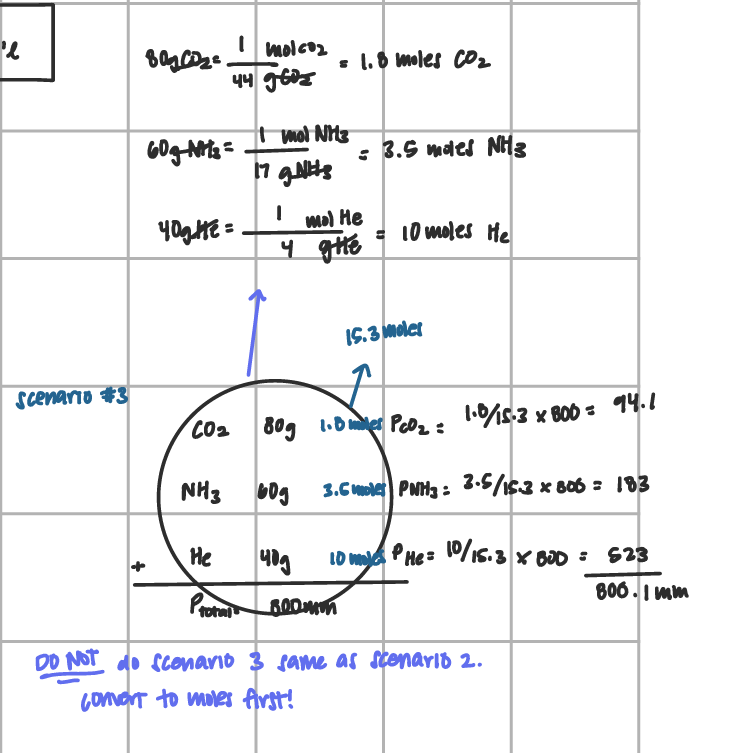 80gCO2 = 1 molCO2 / 44 gCO2 = 1.8 moles CO2
60gNH3 = 1 mol NH3 / 17 gNH3 = 3.5 moles NH3
40gHe = 1 mol He / 4 gHe = 10 moles He
15.3 moles
scenario #3
CO2 80g 1.8 moles PCO2 = 1.8/15.3 x 800 = 94.1
NH3 60g 3.5 moles PNH3 = 3.5/15.3 x 800 = 183
+ He 40g 10 moles PHe = 10/15.3 x 800 = 523
Ptotal = 800mm 800.1 mm
DO NOT do scenario 3 same as scenario 2.
convert to moles first!